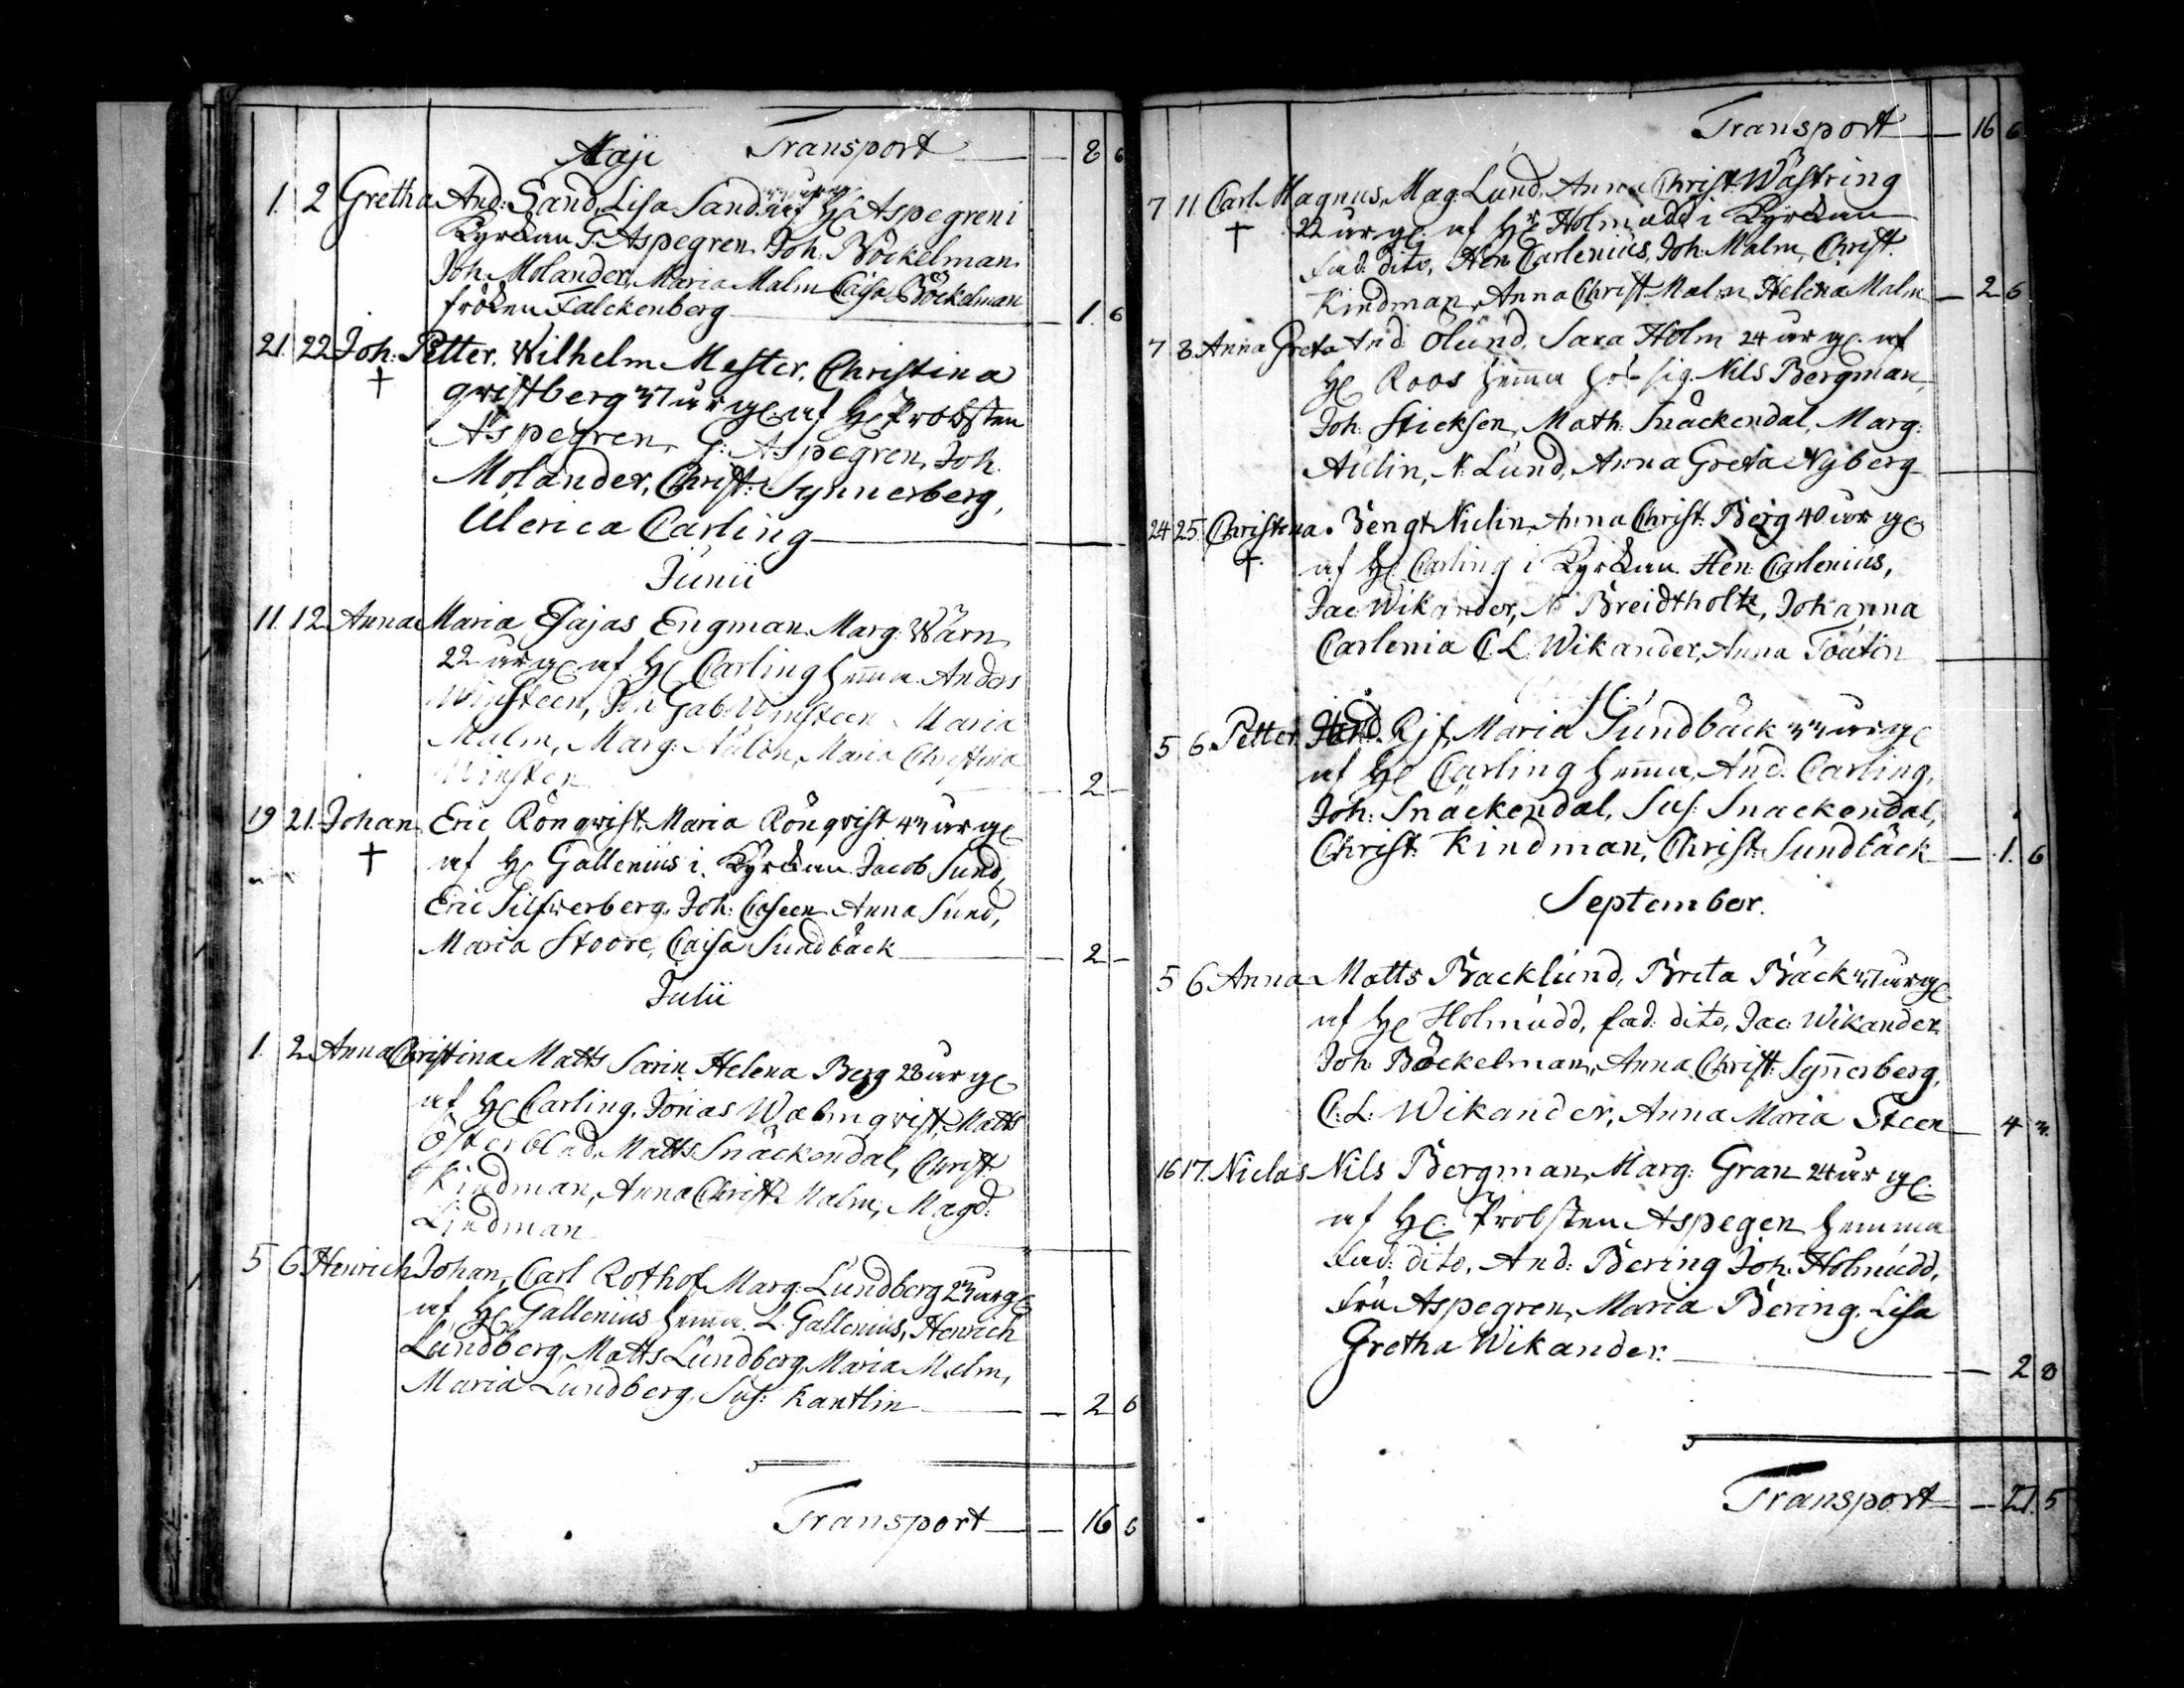 Maji Transport 8 6
1. 2 Gretha And: Sand, Lisa Sand. af H: Aspegren i
Kyrckan G: Aspegren, Joh: Böckelman
Joh: Molander, Maria Malm Caisa Böckelman
fröken Falckenberg 1. 6
21. 22 Joh: Petter. Wilhelm Mester, Christina
† qvistberg 37 år g: af H: Probsten
Aspegren, G: Aspegren, Joh.
Molander, Christ: Synnerberg,
Ulerica Carling
Junii
11. 12 Anna Maria Esajas Engman Marg: Wärn
22 år g: af H: Carling hemma Anders
Winsteen, Joh Gab: Winsteen Maria
Malm, Marg: Aulin, Maria Christina
Winsten 2 -
19 21. Johan Eric Rönqvist Maria Rönqvist 43 år g:
† af H: Gallenius i Kyrckan Jacob Sund,
Eric Silfwerberg, Joh: Caseen Anna Sund,
Maria Stoore, Caisa Sundbäck 2 -
Julii
1. 2 Anna Christina Matts Sarin, Helena Berg 28 år g:
af H: Carling, Jonas Walmqvist, Matts
Österblad, Matts Snäckendal, Christ:
Kindman, Anna Christ: Malm, Magd:
Lindman
5 6 Henrich Johan, Carl Rothof Marg: Lundberg 23 år g:
af H: Gallenius hemma L. Gallenius, Henrich
Lundberg, Matts Lundberg, Maria Malm,
Maria Lundberg, Sus: Kantlin 2 6
Transport 16 6
Transport 16 6
7 11 Carl Magnus, Mag: Lund, Anna Christ: Wästring
† 22 år g: af H: Holmudd i Kyrckan
fad: dito, Hen: Carlenius, Joh: Malm, Christ.
Kindman, Anna Christ: Malm Helena Malm 2 6
7 8 Anna Greta And: Ölund, Sara Holm 24 år g: af
H: Roos hemma hos sig. Nils Bergman,
Joh: Sticksen, Math: Snäckendal, Marg:
Aulin, N: Lund, Anna Greta Nyberg
24 25 Christina. Bengt Niclin, Anna Christ: Berg 40 år g:
† af H: Carling i Kyrckan. Hen: Carlenius,
Jac: Wikander, N: Breidtholtz, Johanna
Carlenia C. L. Wikander, Anna Toutin
5 6 Petter And. Rif, Maria Sundbäck 33 år g:
af H: Carling hemma, And: Carling,
Joh: Snäckendal, Sus: Snackendal,
Christ: Kindman, Christ: Sundbäck 1. 6
September.
5 6 Anna Matts Backlund, Brita Bäck 37 år g:
af H: Holmudd, fad: dito, Jac: Wikander
Joh: Böckelman, Anna Christ: Synerberg,
C: L: Wikander, Anna Maria Steen 4 3.
16 17. Niclas Nils Bergman, Marg: Gran 24 år g:
af H: Probsten Aspegen hemma
fad: dito, And: Bering Joh: Holmudd,
fru Aspegren, Maria Bering, Lisa
Gretha Wikander. 2 8
Transport